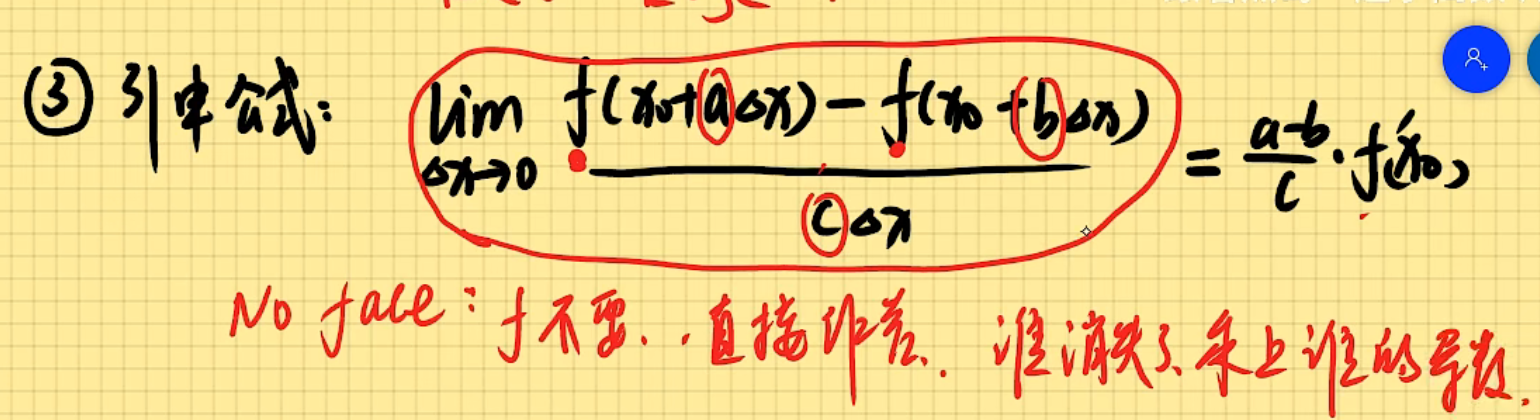 ③ 引申公式: lim Δx→0 [f(x₀+aΔx) - f(x₀+bΔx)] / cΔx = (a-b)/c · f'(x₀)
No face: f不要. 直接作差. 谁消失了乘上谁的导数.